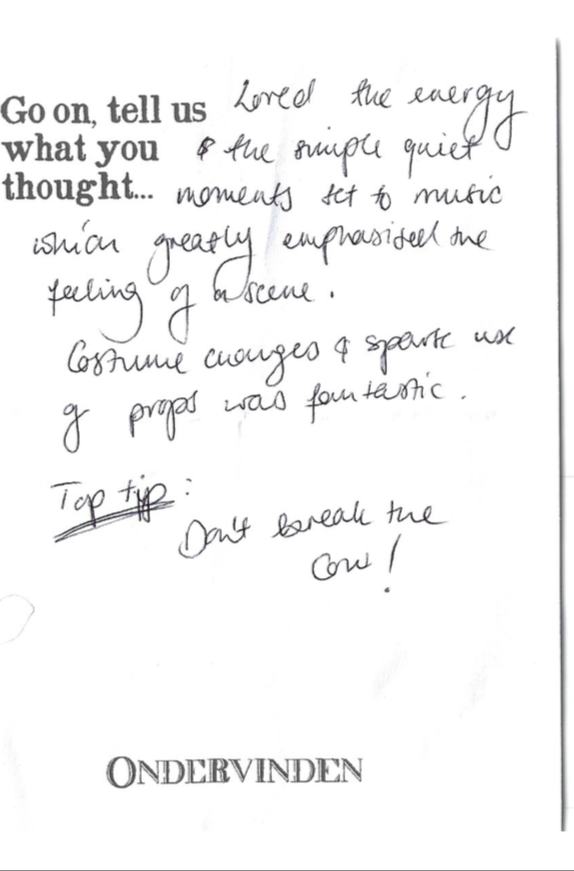 Go on, tell us Loved the energy
what you & the simple quiet
thought... moments set to music
which greatly emphasised the
feeling of a scene.
Costume changes & sparse use
of props was fantastic.
Top tip:
Don't break the
Cow!
ONDERVINDEN